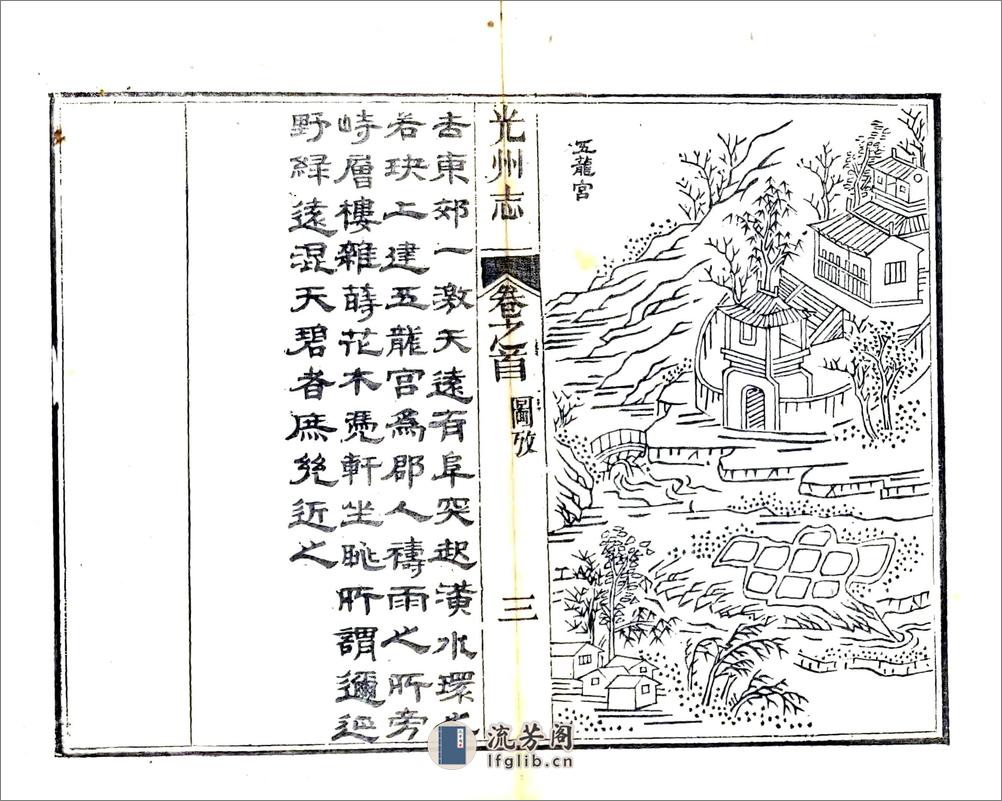 五龍宮
光州志 卷之首 圖攷 三
去東郊一激天遠有阜突起潢水環
若玦上建五龍宮爲郡人禱雨之所旁
峙層樓雜蒔花木凴軒坐眺所謂邇延
野緑遠混天碧者庶幾近之
流芳阁
lfglib.cn